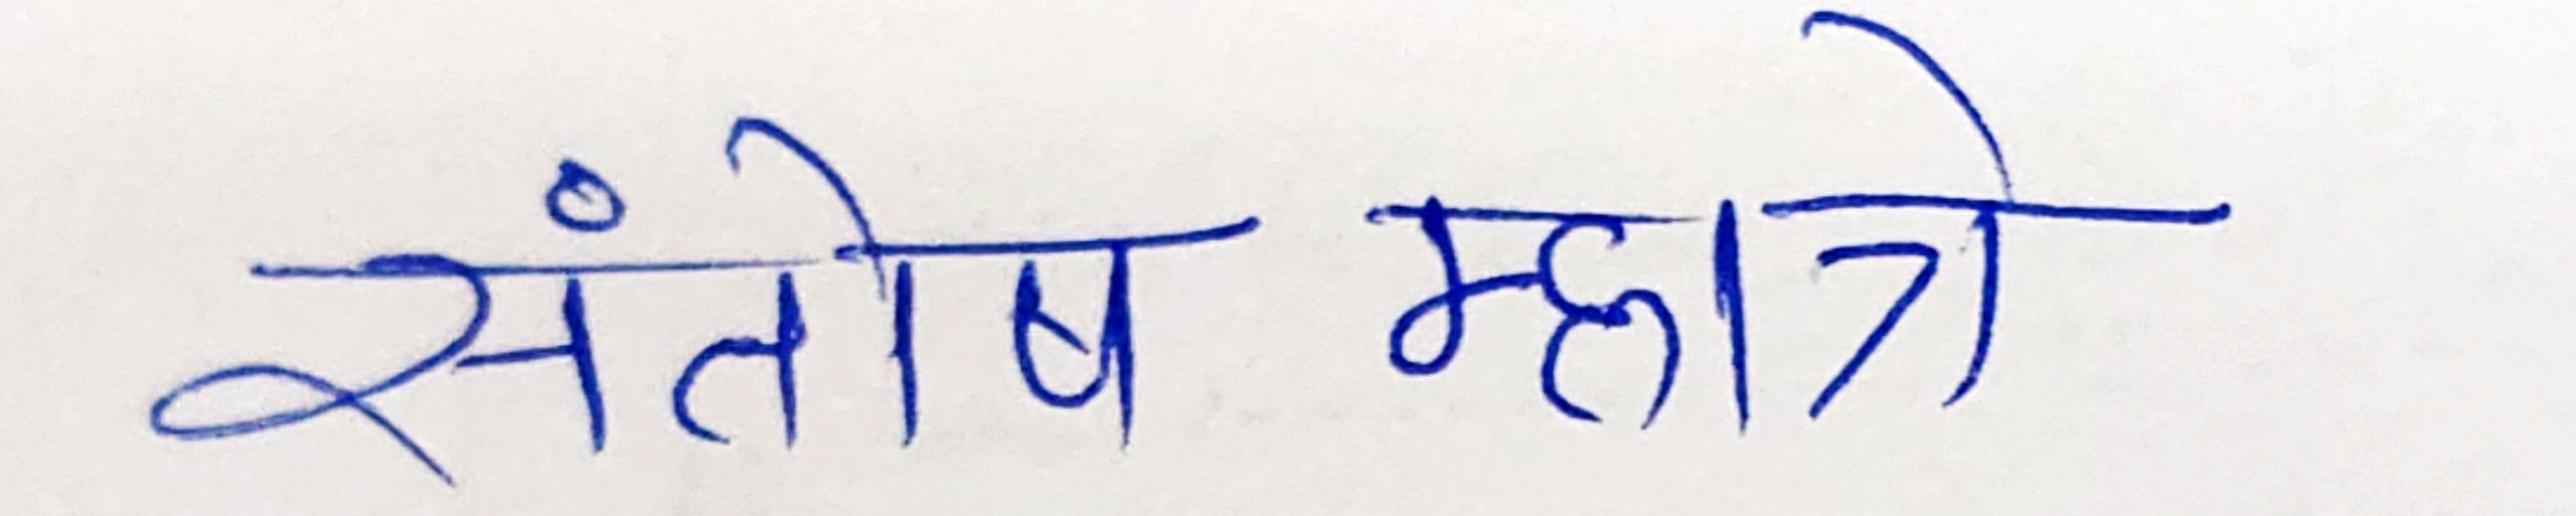 संतोष म्हात्रे